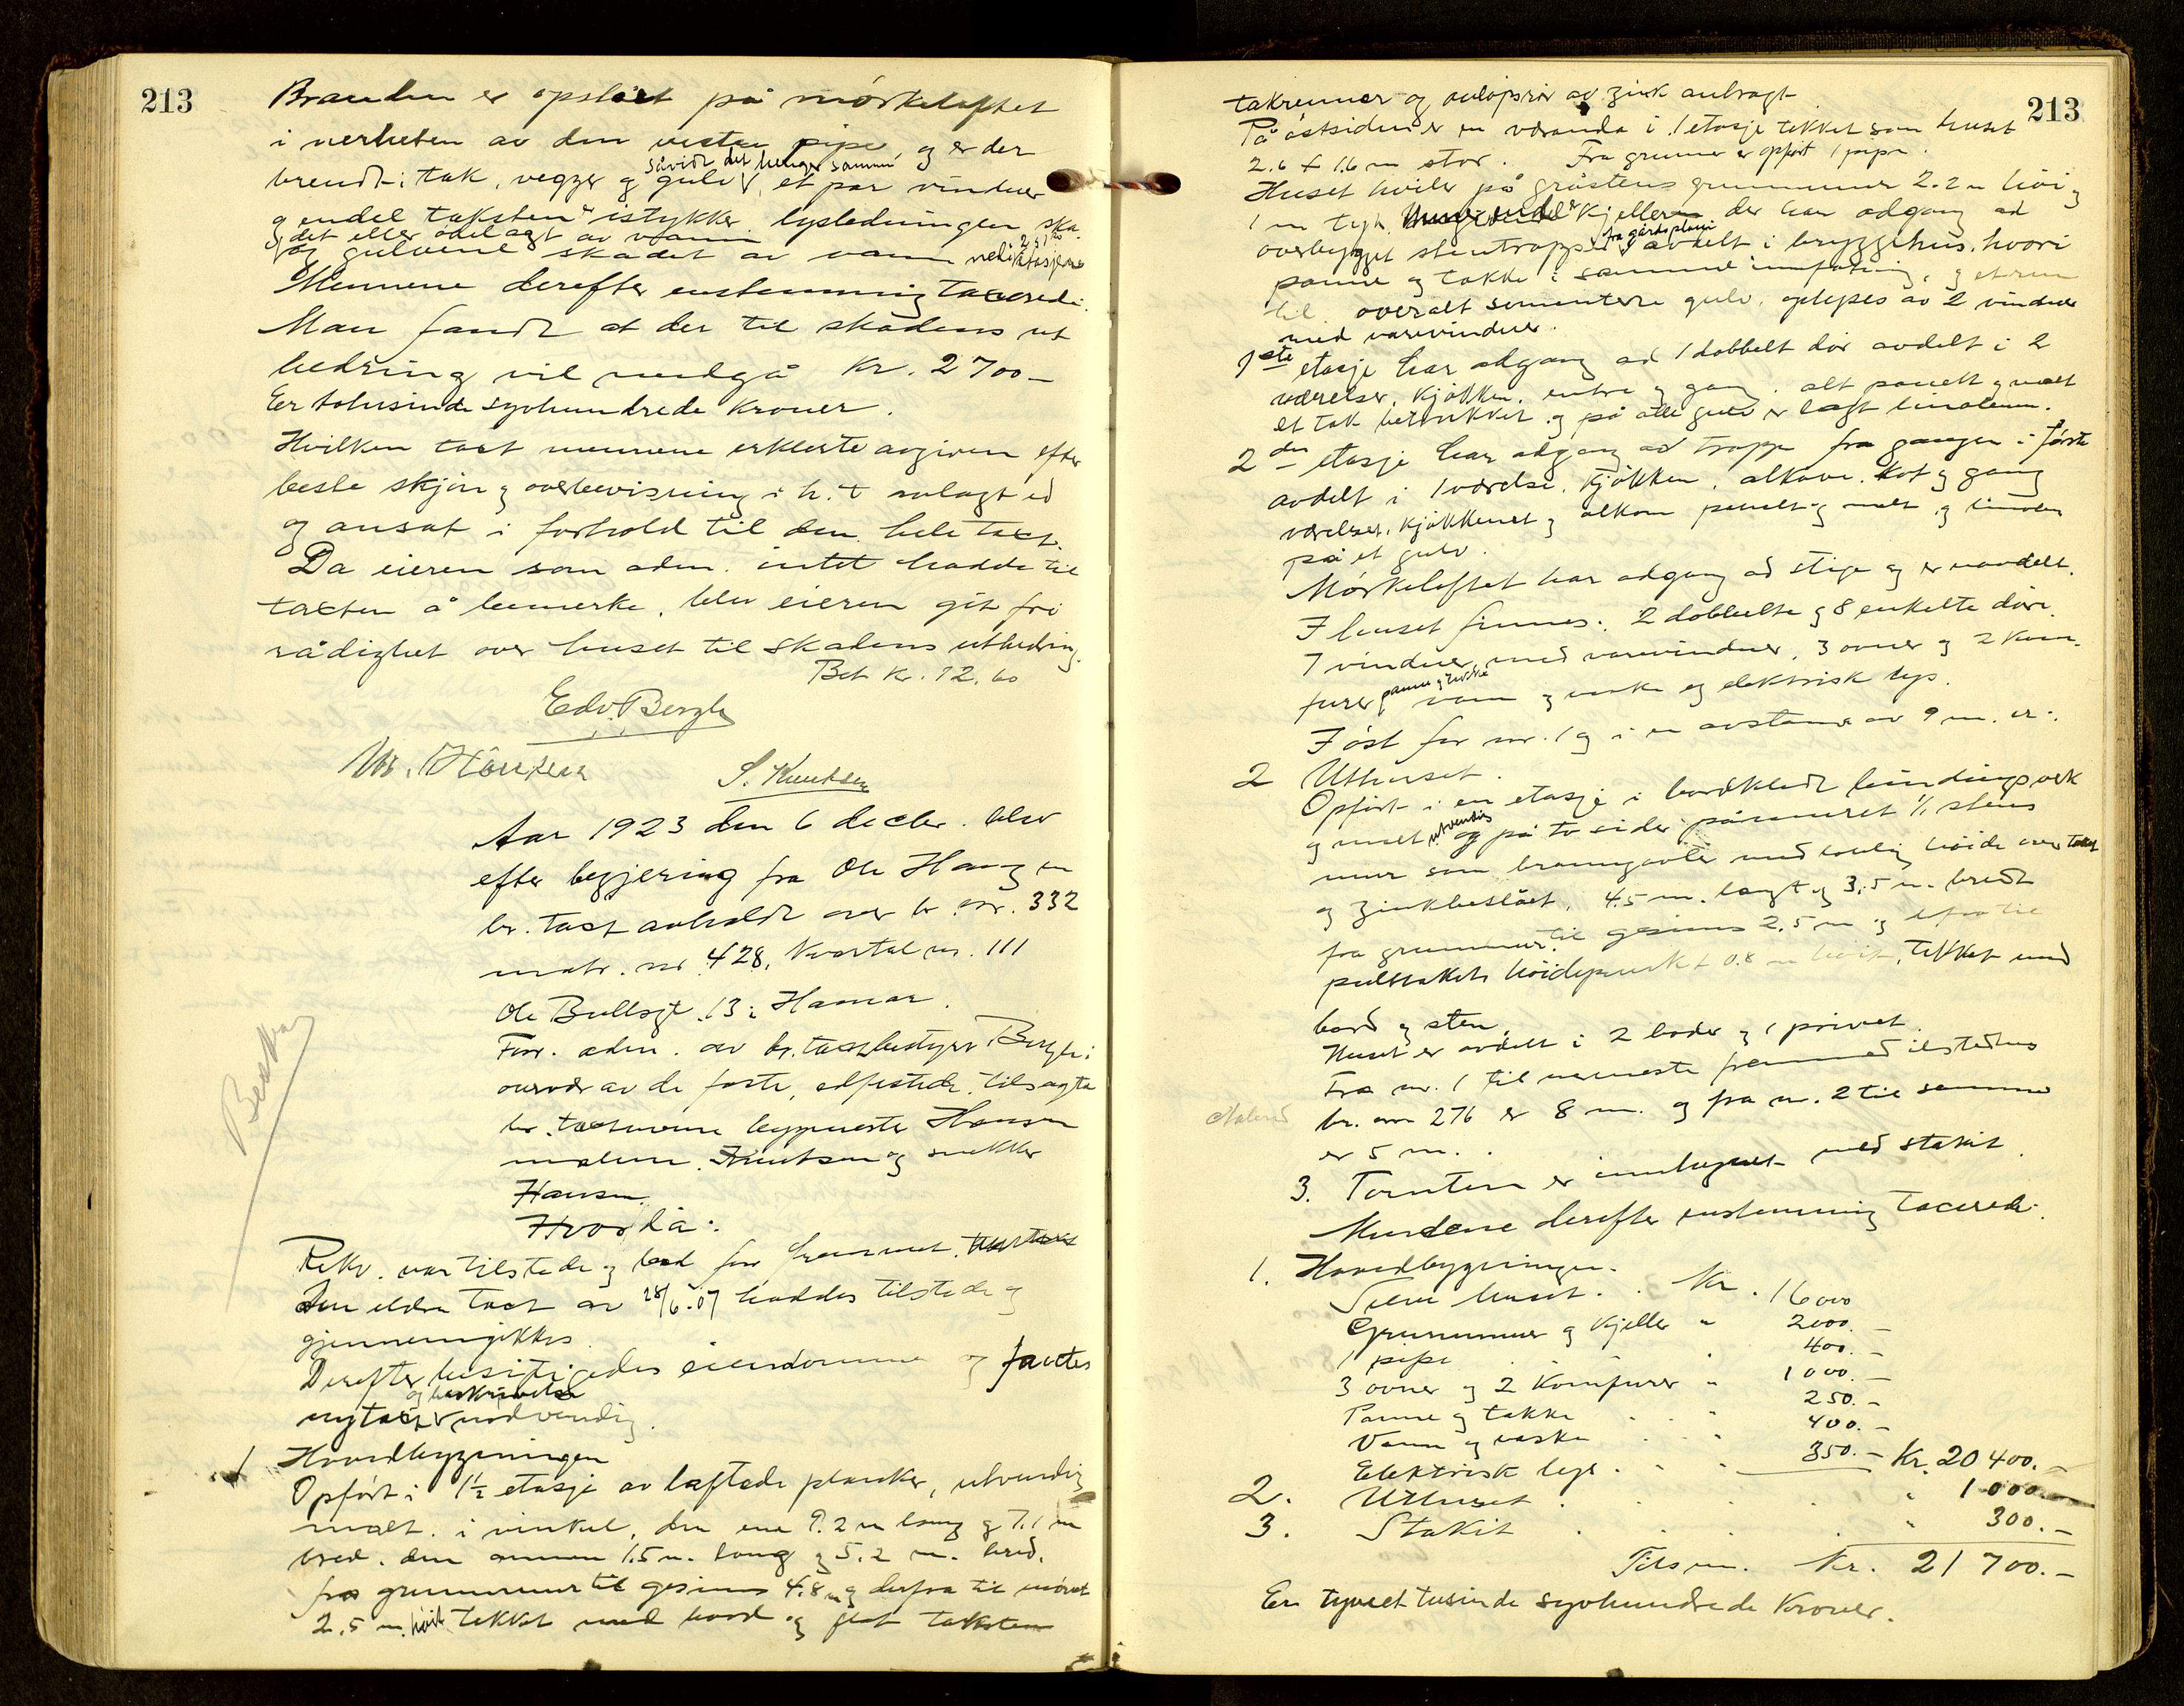 213
Branden er opstått på mørkeloftet
i nerheten av den vestre pipe, og er der
såvidt det henger sammen
brendt i tak, vegger og gulv, et par vinduer
og endel taksten istykker. lysledningen ska-
det eller ødelagt av vann
og gulvene skadet av vann ned i 2 & 1 etasjene
Mennene derefter enstemmig taxerede:
Man fandt at der til skadens ut
bedring vil medgå kr. 2700 –
Er totusinde syvhundrede kroner.
Hvilken taxt mennene erklerte avgiven efter
beste skjøn og overbevisning i h. t avlagt ed
og ansat i forhold til den hele taxt.
Da eieren som adm. intet hadde til
taxten å bemerke, blev eieren git fri
rådighet over huset til skadens utbedring.
Bet kr. 12.60
Edv. Bergh
M. Hansen
S. Knutsen
Aar 1923 den 6 decbr. blev
efter begjering fra Ole Haug en
br. taxt avholdt over br. nr. 332
matr. nr 428, Kvartal nr. 111
Ole Bullsgt. 13 i Hamar.
Forr. adm. av br. taxtbestyrer Bergh i
overvær av de faste, edfestede, tilsagte
br. taxtmenn byggmester Hansen
maleren Knutsen og snekker
Hansen.
Hvorda:
Rekv. var tilstede og bad for fremmet.
Den eldre taxt av 28/6-07 haddes tilstede og
gjennemgikkes
Derefter besiktigedes eiendommen og fantes
og beskrivelse
ny taxt nødvendig.
1 Hovedbygningen
Opført i 1½ etasje av laftede planker, utvendig
malt. i vinkel, den ene 9.2 m lang og 7.1 m
bred. den annen 1.5 m. lang og 5.2 m. bred.
fra grunnmur til gesims 4.8 m og derfra til mønet
2.5 m. høit tekket med bord og flat taksten
213
takrenner og avløpsrør av zink anbragt
På østsiden er en veranda i 1 etasje tekket som huset
2.6 x 1.6 m stor. Fra grunnen er opført 1 pipe.
Huset hviler på gråstens grunnmur 2.2 m høi og
1 m tyk. kjelleren der har adgang ad
fra gårdsplass
overbygget stentrapp avdelt i bryggehus, hvori
panne og takke i samme innfatning, og et rum
til overalt sementerte gulv, oplyses av 2 vinduer
med varevinduer.
1ste etasje har adgang ad 1 dobbelt dør avdelt i 2
værelser, kjøkken, entre og gang. alt panelt og malt
et tak betrukket og på alle gulv er lagt linoleum.
2den etasje har adgang ad trapp fra gangen i første
avdelt i 1 værelse, kjøkken, alkove. kot og gang
værelset, kjøkkenet og alkoven panelt og malt og linoleum
på et gulv.
Mørkeloftet har adgang ad stige og er uavdelt.
I huset finnes: 2 dobbelte og 8 enkelte døre.
7 vinduer med varevinduer, 3 ovner og 2 kom-
panne og takke
furer, vann og vaske og elektrisk lys.
I øst for nr. 1 og i en avstand av 9 m. er:
2 Uthuset.
Opført i en etasje i bordkledt bindingsverk
utvendig
og malt og på to sider påmuret 1/1 stens
mur som branngavler med lovlig høide over taket
og zinkbeslået, 4.5 m. langt og 3.5 m. bredt
fra grunnmur til gesims 2.5 m og derfra til
pulttakets høidepunkt 0.8 m høit, tekket med
bord og sten.
Huset er avdelt i 2 boder og 1 privet.
Fra nr. 1 til nærmeste fremmed ildsted hus
br. nr 276 er 8 m. og fra nr. 2 til samme
er 5 m.
3. Tomten er innhegnet med stakit.
Mendene derefter enstemmig taxerede.
1. Hovedbygningen.
Selve huset. . Kr. 16000
Grunnmur og kjeller " 2000. –
1 pipe 400. –
3 ovner og 2 komfurer " 1000. –
Panne og takke " 250. –
Vann og vaske " 400. –
Elektrisk lys " 350. – Kr. 20400. –
2. Uthuset " 1000. –
3. Stakit " 300. –
Tilsm. Kr. 21700. –
Er tyveet tusinde syvhundrede Kroner.